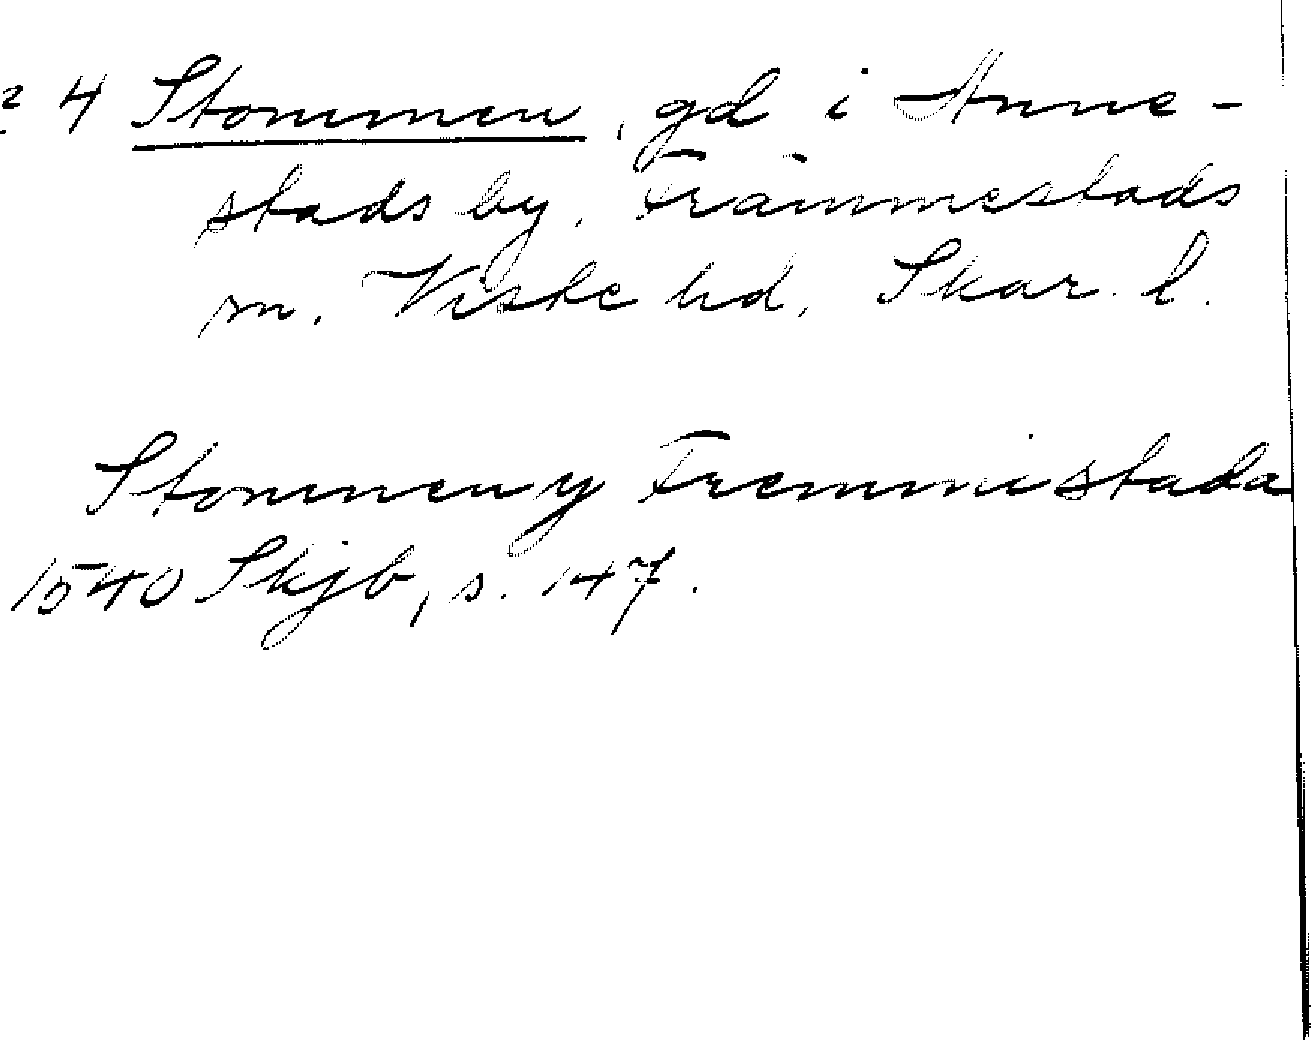 2 4 Stommen, gd i Anne-
stads by. Främmestads
sn. Viste hd. Skar. l.
Stommen y Fremmistada
1540 Skjb, s. 147.